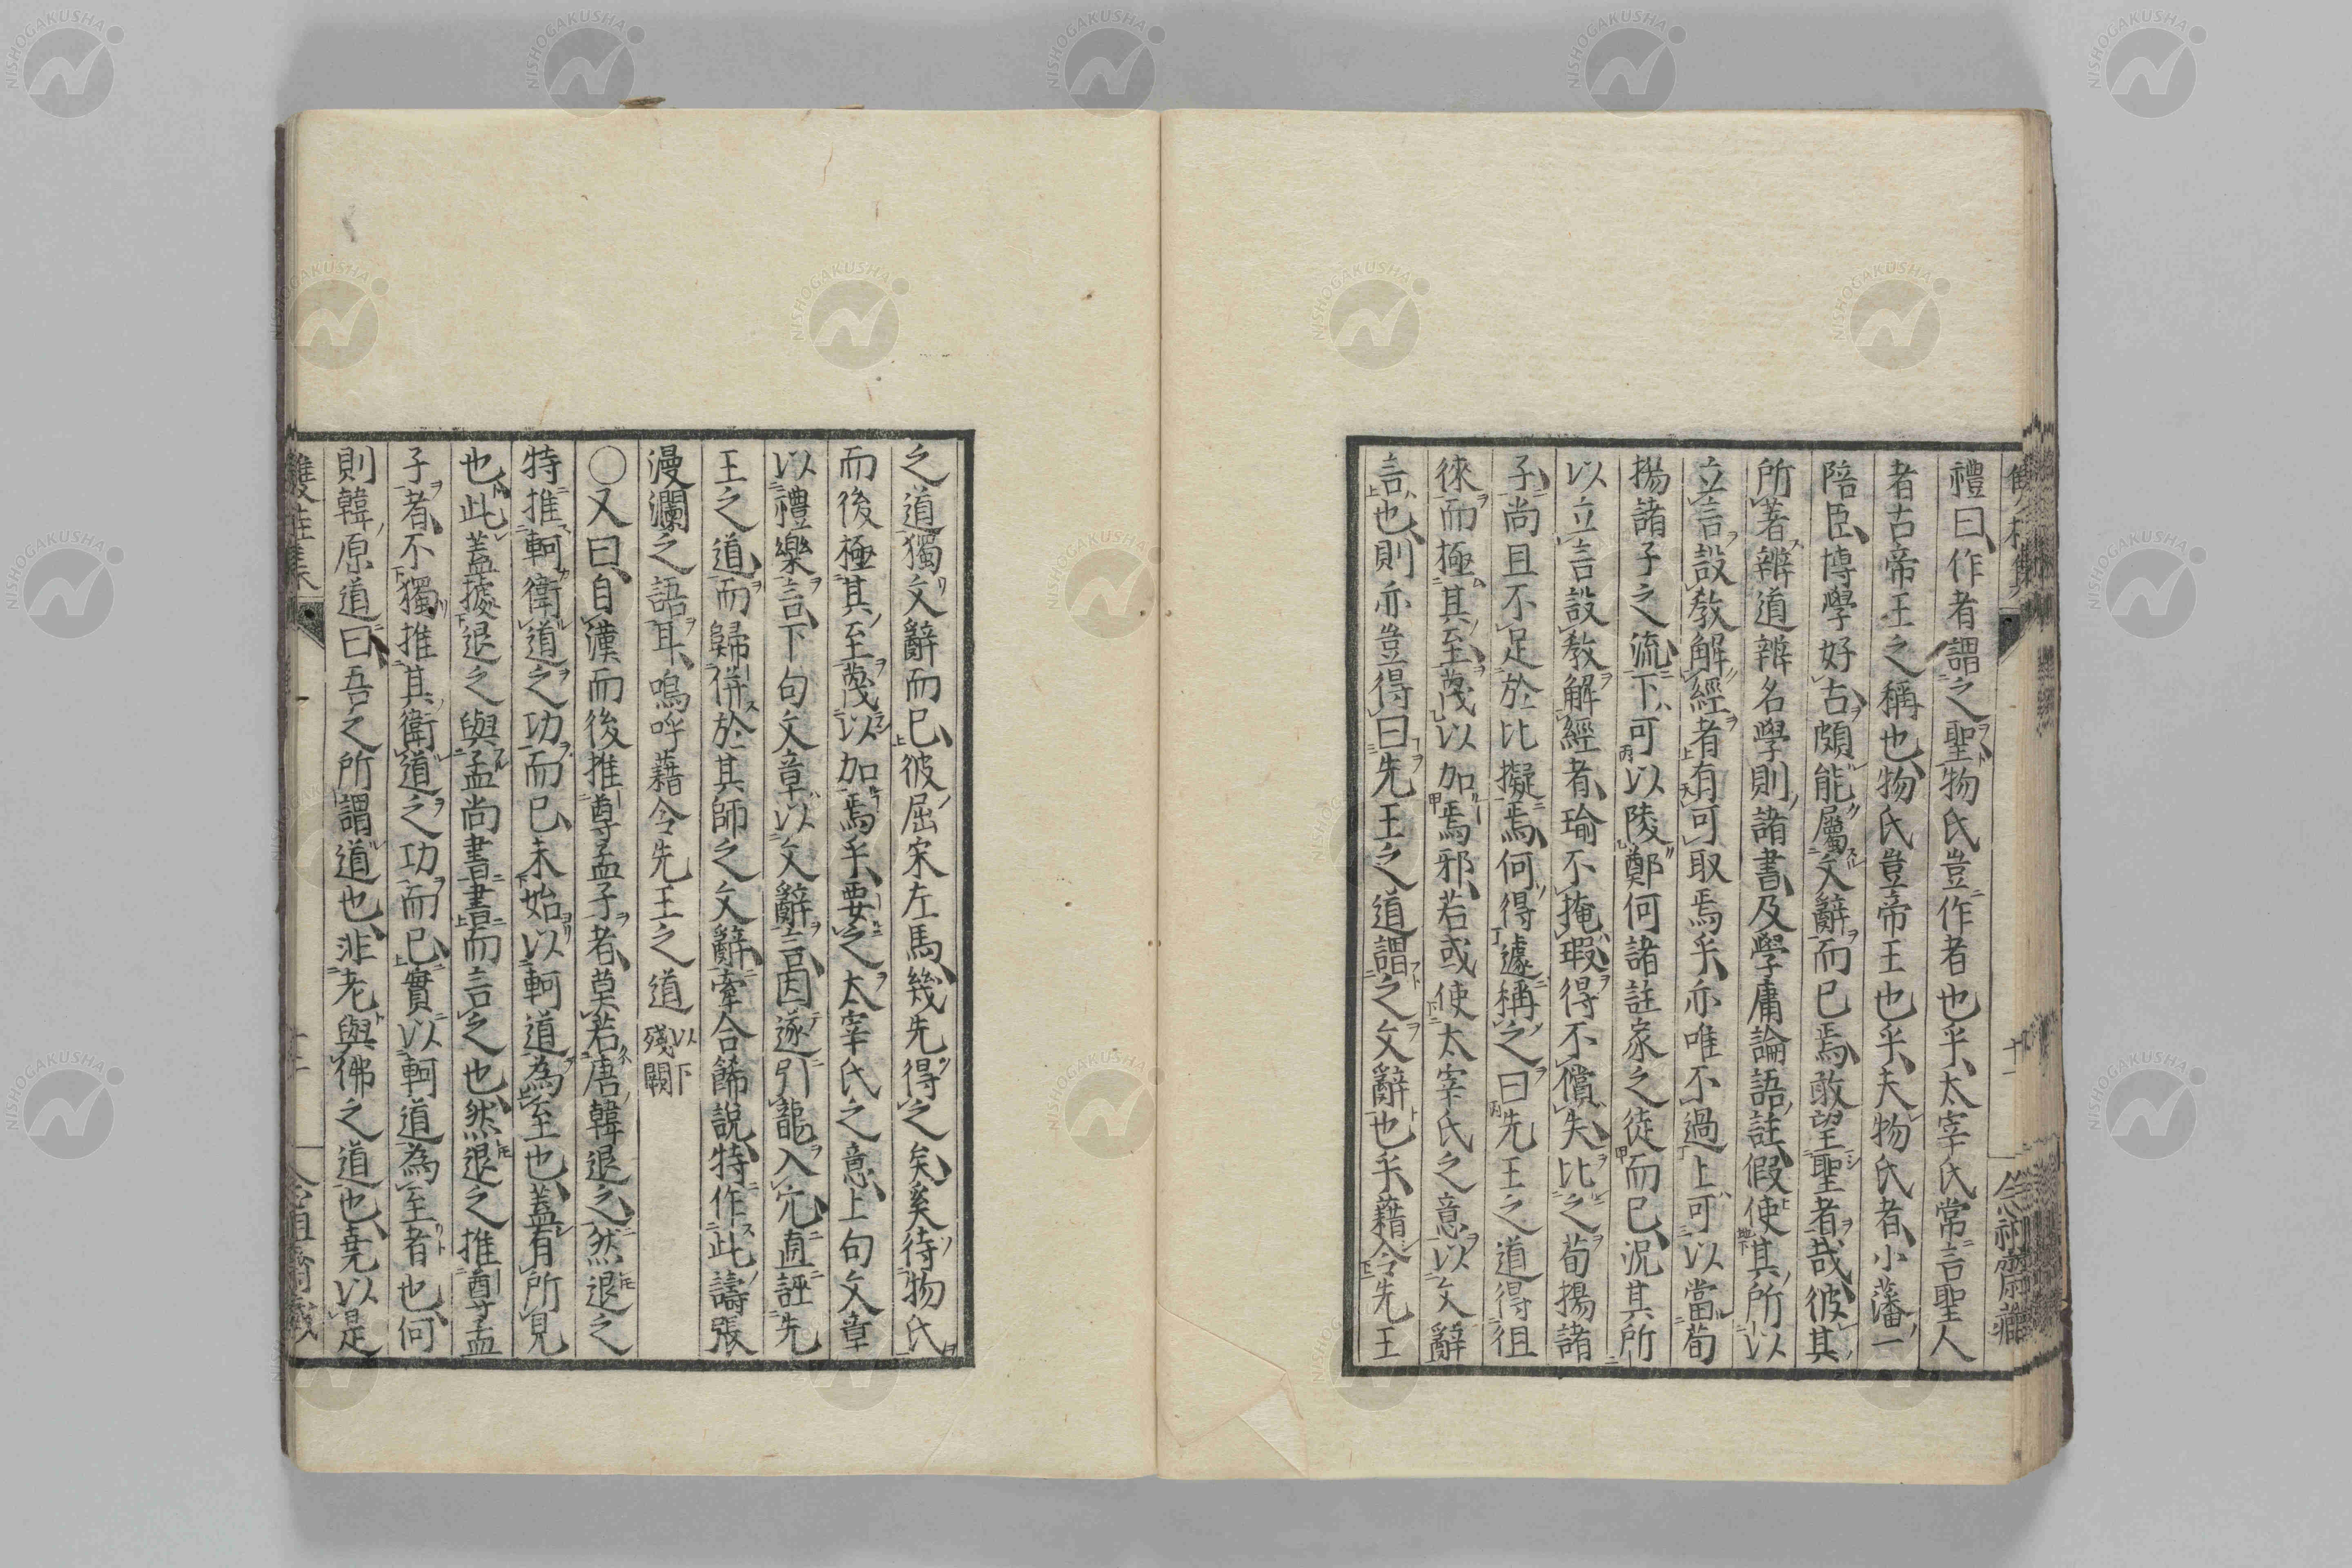 禮曰作者謂之聖物氏豈作者也乎太宰氏常言聖人
者古帝王之稱也物氏豈帝王也乎夫物氏者小藩一
陪臣博學好古頗能屬文辭而已焉敢望聖者哉彼其
所著辨道辨名學則諸書及學庸論語註假使其所以
立言設教解經者有可取焉乎亦唯不過上可以當荀
揚諸子之流下可以陵鄭何諸註家之徒而已況其所
以立言設教解經者瑜不掩瑕得不償失比之荀揚諸
子尚且不足於比擬焉何得遽稱之曰先王之道得徂
徠而極其至蔑以加焉邪若或使太宰氏之意以文辭
言也則亦豈得曰先王之道謂之文辭也乎藉令先王
之道獨文辭而已彼屈宋左馬幾先得之矣奚待物氏
而後極其至蔑以加焉乎要之太宰氏之意上句文章
以禮樂言下句文章以文辭言因遂引龍入穴直誣先
王之道而歸併於其師之文辭牽合餙說特作此譸張
漫瀾之語耳嗚呼藉令先王之道 以下殘闕
○又曰自漢而後推尊孟子者莫若唐韓退之然退之
特推軻衛道之功而已未始以軻道為至也蓋有所見
也此蓋據退之與孟尚書書而言之也然退之推尊孟
子者不獨推其衛道之功而已實以軻道為至者也何
則韓原道曰吾之所謂道也非老與佛之道也堯以是